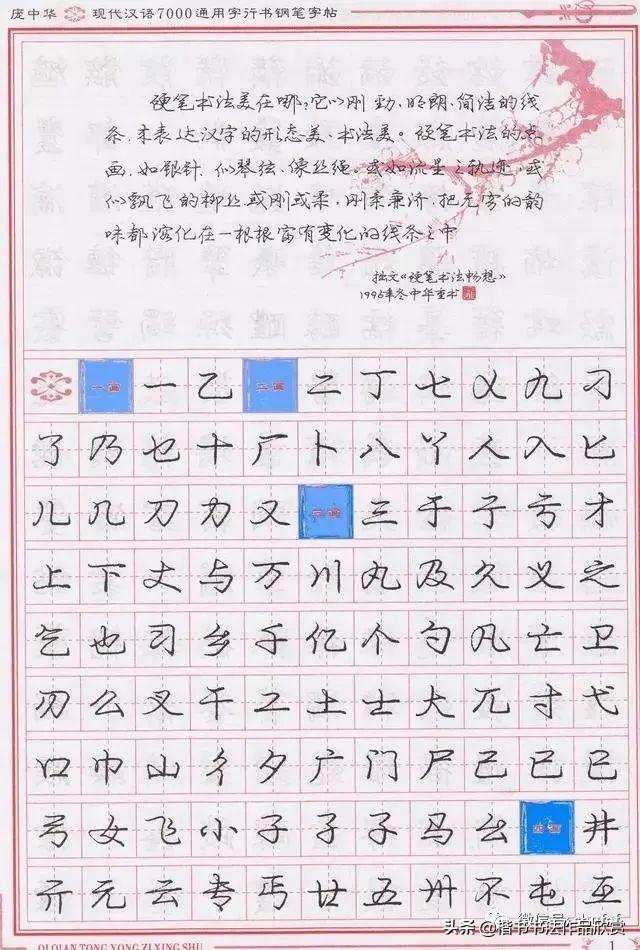 庞中华 现代汉语7000通用字行书钢笔字帖
硬笔书法美在哪？它以刚劲、明朗、简洁的线
条，来表达汉字的形态美、书法美。硬笔书法的点
画，如银针，似琴弦，像丝绳。或如流星之轨迹，或
似飘飞的柳丝。或刚或柔，刚柔兼济，把无穷的韵
味都溶化在一根根富有变化的线条之中
拙文《硬笔书法畅想》
1996年冬中华重书
一画 一 乙 二画 二 丁 七 乂 九 刁
了 乃 乜 十 厂 卜 八 丫 人 入 匕
儿 几 刀 力 又 三画 三 于 亍 亏 才
上 下 丈 与 万 川 丸 及 久 义 之
乞 也 习 乡 千 亿 个 勺 凡 亡 卫
刃 么 叉 干 工 土 士 大 兀 寸 弋
口 巾 山 彳 夕 广 门 尸 己 已 巳
弓 女 飞 小 子 孑 孓 马 幺 四画 井
亓 元 云 专 丐 廿 五 卅 不 屯 互
QI QIAN TONG YONG ZI XING SHU
头条@楷书书法作品欣赏
1